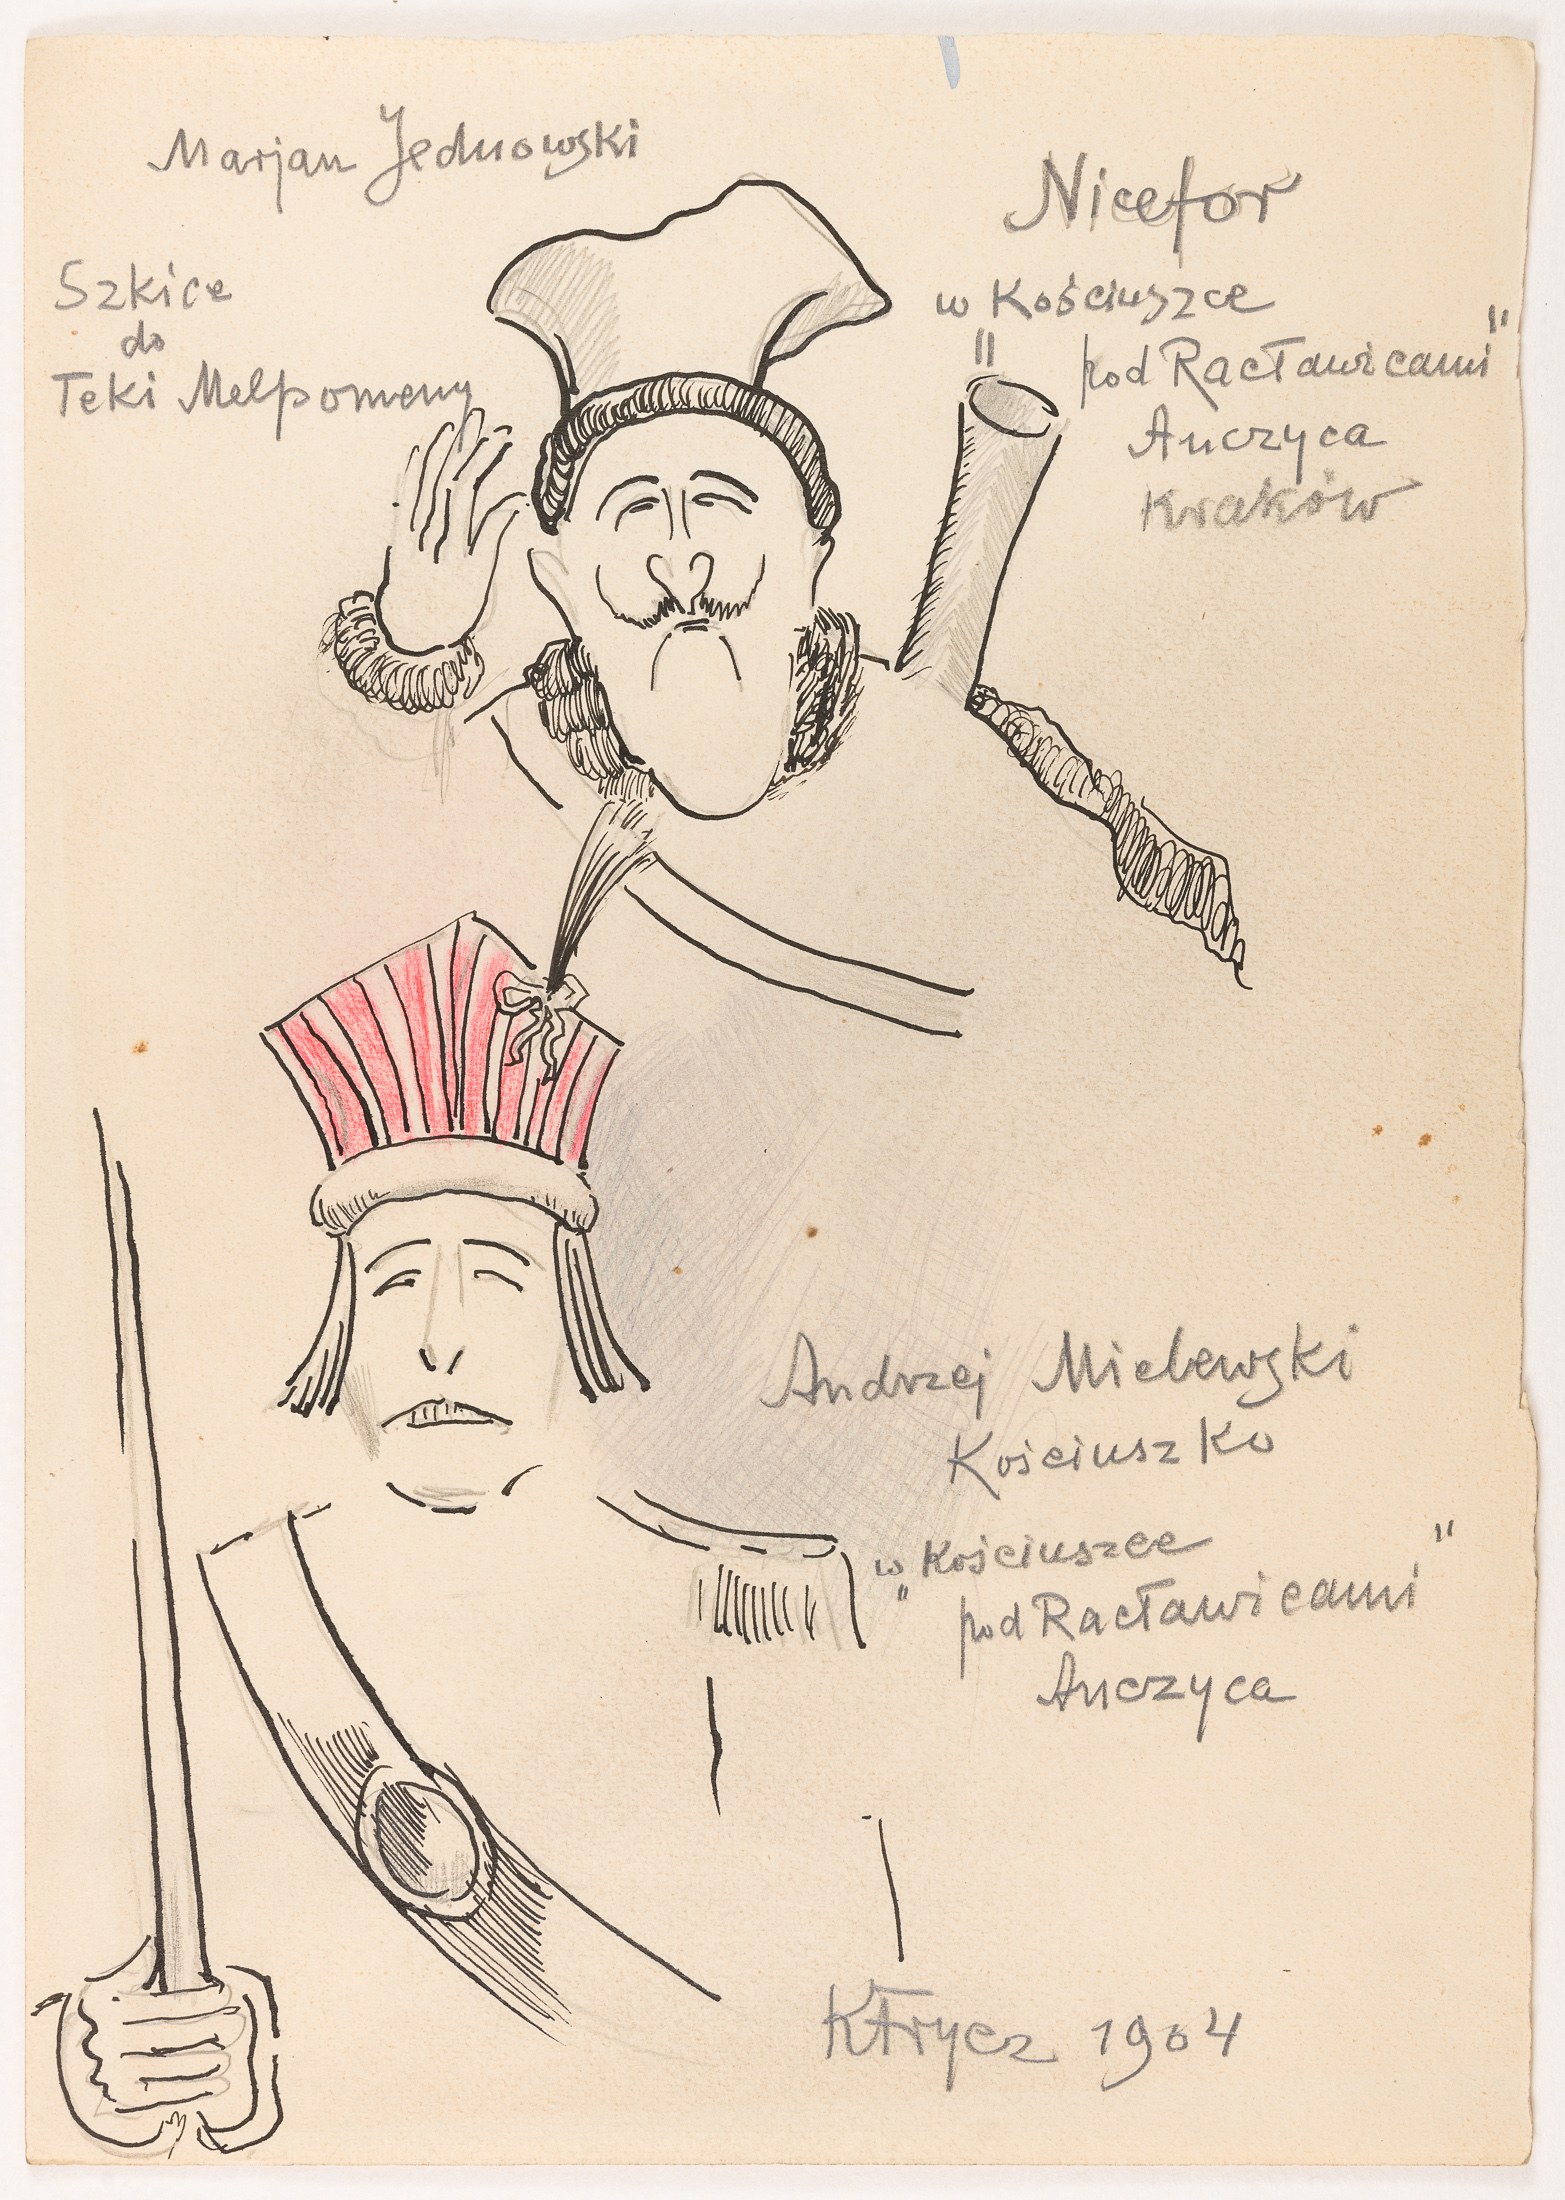 Marjan Jednowski
Szkice
do
Teki Melpomeny
Nicefor
w Kościuszce
" pod Racławicami"
Anczyca
Kraków
Andrzej Mielewski
Kościuszko
w Kościuszce
" pod Racławicami"
Anczyca
KFrycz 1904